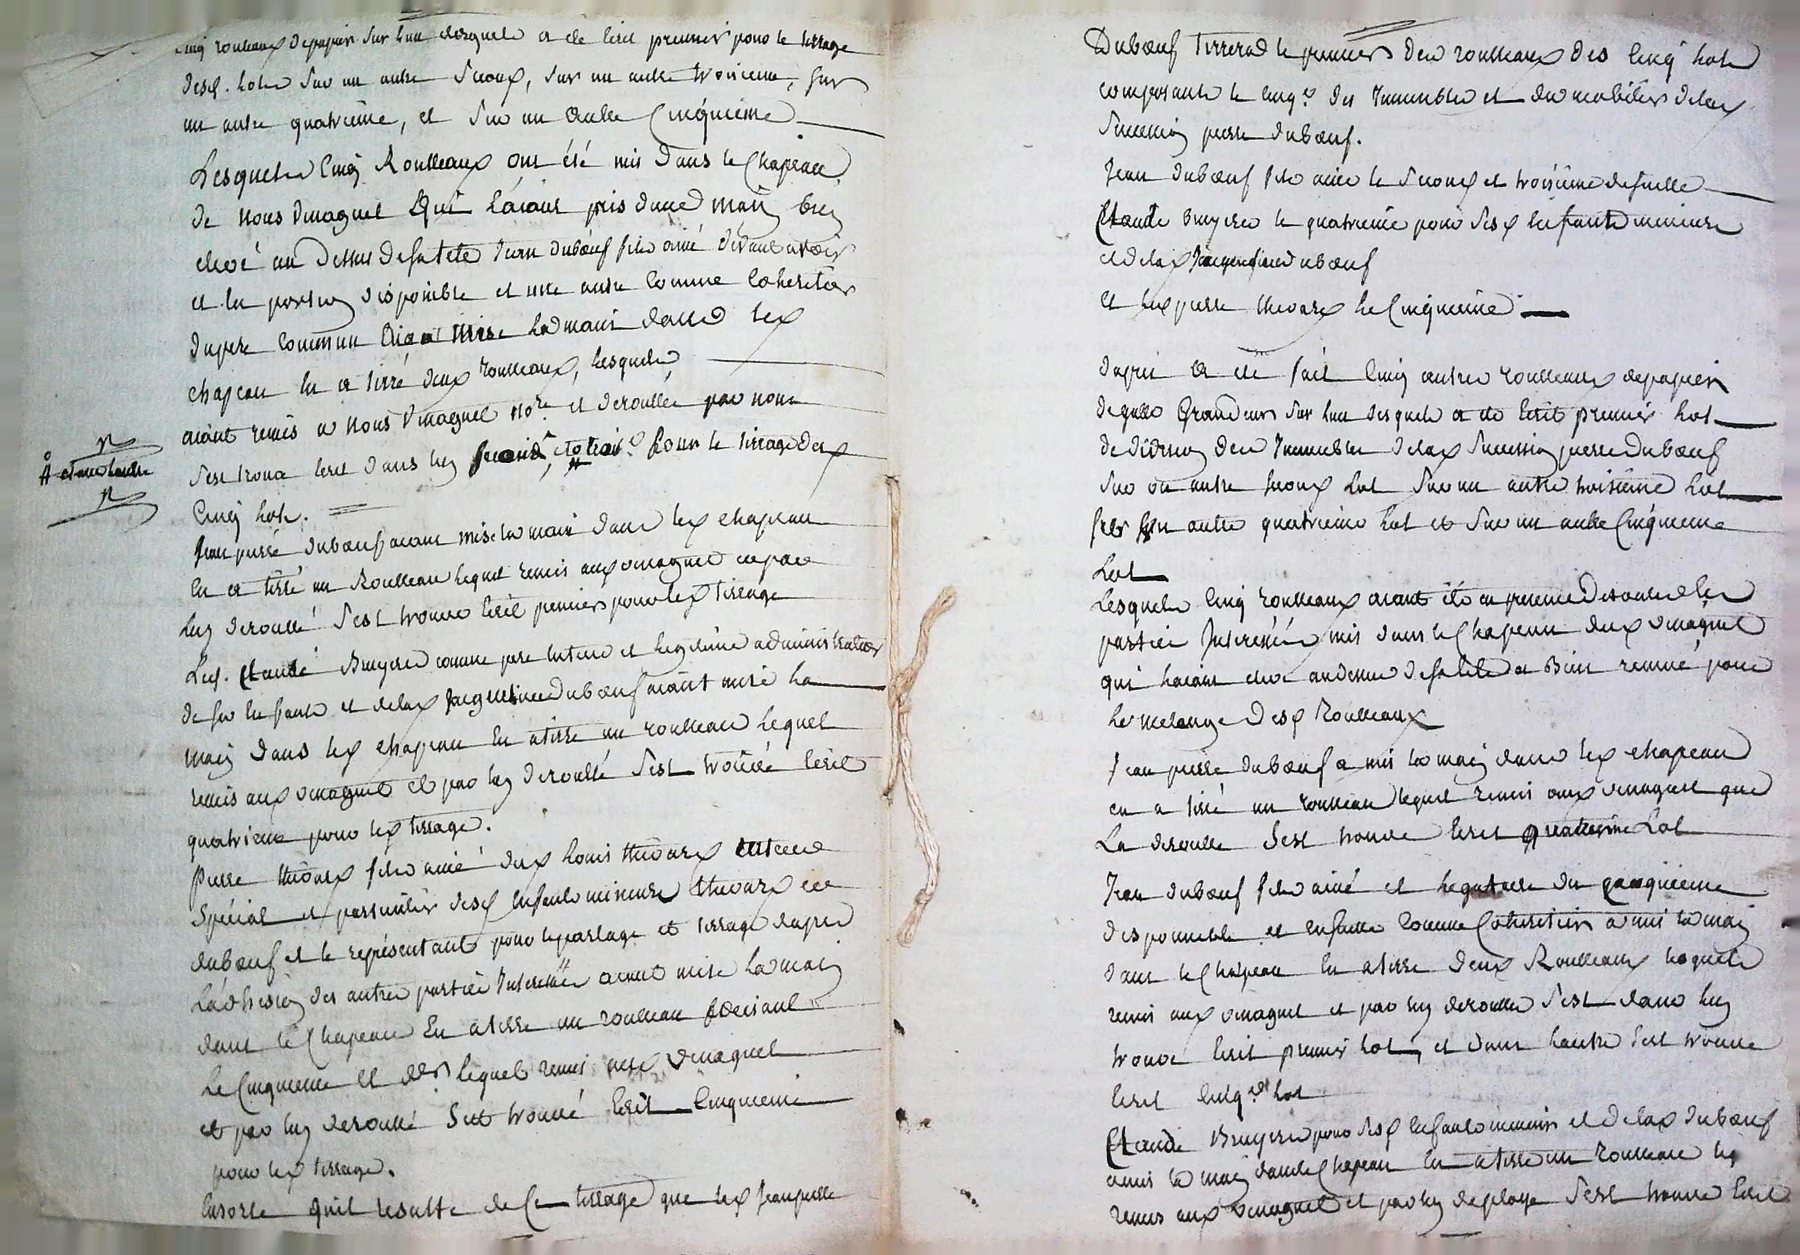 Cinq rouleaux de papier sur l'un desquels a été écrit premier pour le tirrage
desd. lots sur un autre second, sur un autre troisième, sur
un autre quatrième, et sur un autre Cinquième
Lesquels Cinq Roulleaux ont été mis dans le Chapeau
de nous Dmagnet Qui l'aiant pris d'une main bien
elevé au dessus de sa tete Jean Dubœuf fils ainé devant avoir
et la portion disponible et une autre comme Coheritier
du pere Commun Aiant mise la main dans led
chapeau en a tirré deux roulleaux, lesquels
aiant remis a nous Dmagnet no.re et deroullés par nous
s'est trouvé écrit dans l'un second, et trois.e pour le tirrage des
et dans l'autre
Cinq lots.
Jean pierre Dubœuf aiant mis la main dans led chapeau
en a tirré un Roulleau lequel remis aud Dmagnet et par
luy deroullé s'est trouvé écrit premier pour led tirrage
Led. Claude Bruyere comme pere tuteur et legitime administrateur
de ses enfants et de lad Jacqueline Dubœuf aiant mise la
main dans led chapeau en a tirré un roulleau lequel
remis aud Dmagnet et par luy deroullé s'est trouvé écrit
quatrieme pour led tirrage.
Pierre Thivard fils ainé dud Louis Thivard tuteur
Spécial et particulier desd enfants mineurs Thivard et
Dubœuf et le représentant pour le partage et tirrage dapres
l'adhesion des autres parties Interessées aiant mise la main
dans le Chapeau En a tirré un roulleau faisant
Le Cinquieme et der lequel remis aud Dmagnet
et par luy deroullé s'est trouvé écrit Cinquieme
pour led tirrage.
Ensorte qu'il resulte de Ce tirrage que led Jean pierre
Dubœuf tirrera le premier des roulleaux des Cinq lots
composants le cinq.e des Immeubles et du mobilier de la
Succession pierre Dubœuf.
Jean Dubœuf fils ainé le second et troisième de suitte
Claude Bruyere le quatrieme pour sesd Enfants mineurs
et de lad Jacqueline Dubœuf
et led pierre Thivard le Cinquieme
dapres a été fait Cinq autres roulleaux de papier
degalle Grandeur sur l'un desquels a été écrit premier lot
de division des Immeubles de lad succession pierre Dubœuf
sur un autre second lot sur un autre troisième lot
sur un autre quatrieme lot et sur un autre Cinquieme
Lot
Lesquels Cinq roulleaux aiant été en presence de toutes les
parties Interessées mis dans le Chapeau dud Dmagnet
qui l'aiant elevé au dessus de sa tete a Bien remué pour
Le melange desd Roulleaux
Jean pierre Dubœuf a mis la main dans led chapeau
en a tirré un roulleau lequel remis aud Dmagnet qui
La deroullé s'est trouvé écrit quatrieme Lot
Jean Dubœuf fils ainé et legataire du
disponible et ensuitte comme Coheritier a mis la main
dans le Chapeau En a tirré deux Roulleaux lesquels
remis aud Dmagnet et par luy deroullé s'est dans l'un
trouvé écrit premier lot, et dans l'autre s'est trouvé
écrit Cinq.e lot
Claude Bruyere pour sesd Enfants mineurs et de lad Dubœuf
a mis la main dans le Chapeau En a tirré un roulleau
remis aud Dmagnet et par luy deployé s'est trouvé écrit